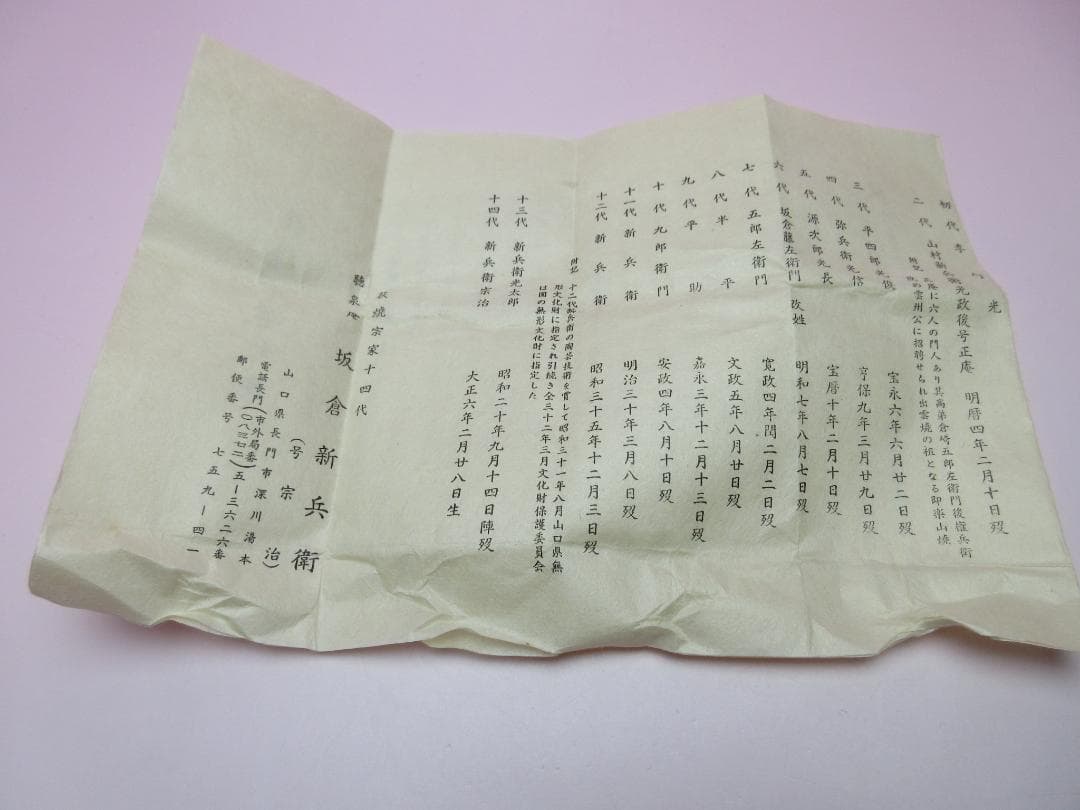 初代 李 光
二代 山村新兵衛光政後号正庵 明暦四年二月十日歿
附記 正庵に六人の門人あり其高弟倉崎五郎左衛門後権兵衛
后の雲州公に招聘せられ出雲焼の祖となる即楽山焼
三代 平四郎光俊 宝永六年六月廿二日歿
四代 弥兵衛光信 享保九年三月廿九日歿
五代 源次郎光長 宝暦十年二月十日歿
六代 坂倉藤左衛門 改姓 明和七年八月七日歿
七代 五郎左衛門 寛政四年閏二月二日歿
八代 半平 文政五年八月廿日歿
九代 平助 嘉永三年十二月十三日歿
十代 九郎衛門 安政四年八月十日歿
十一代 新兵衛 明治三十年三月八日歿
十二代 新兵衛 昭和三十五年十二月三日歿
附記 十二代新兵衛の陶芸技術を賞して昭和三十一年八月山口県無
形文化財に指定され引続き仝三十二年三月文化財保護委員会
は国の無形文化財に指定した
十三代 新兵衛光太郎 昭和二十年九月十四日陣歿
十四代 新兵衛宗治 大正六年二月廿八日生
萩焼宗家十四代
聴泉庵 坂倉新兵衛
(号 宗治)
山口県長門市深川湯本
電話長門(市外局番〇八三七二)五―三六二六番
郵便番号 七五九―四一